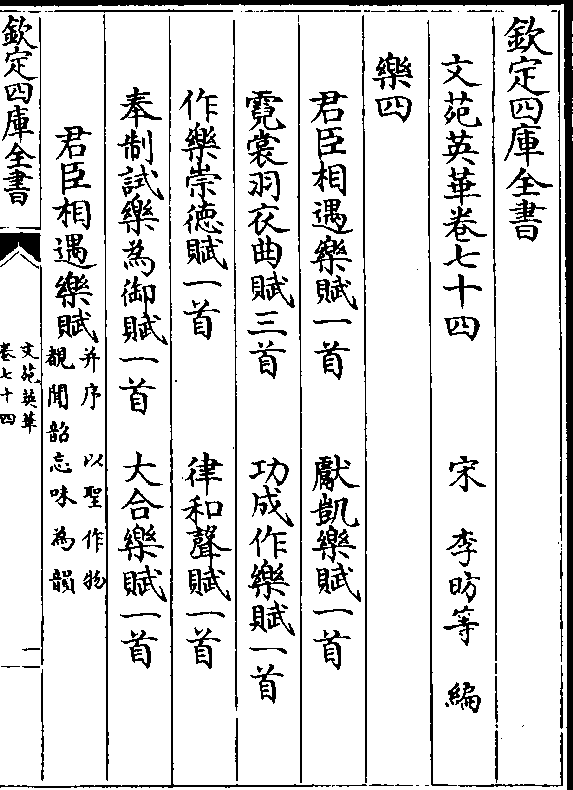 欽定四庫全書
文苑英華卷七十四
宋 李昉等 編
樂四
君臣相遇樂賦一首 獻凱樂賦一首
霓裳羽衣曲賦三首 功成作樂賦一首
作樂崇德賦一首 律和聲賦一首
奉制試樂為御賦一首 大合樂賦一首
君臣相遇樂賦 并序 以聖作物
覩聞韶忘味為韻
欽定四庫全書
文苑英華
卷七十四
一